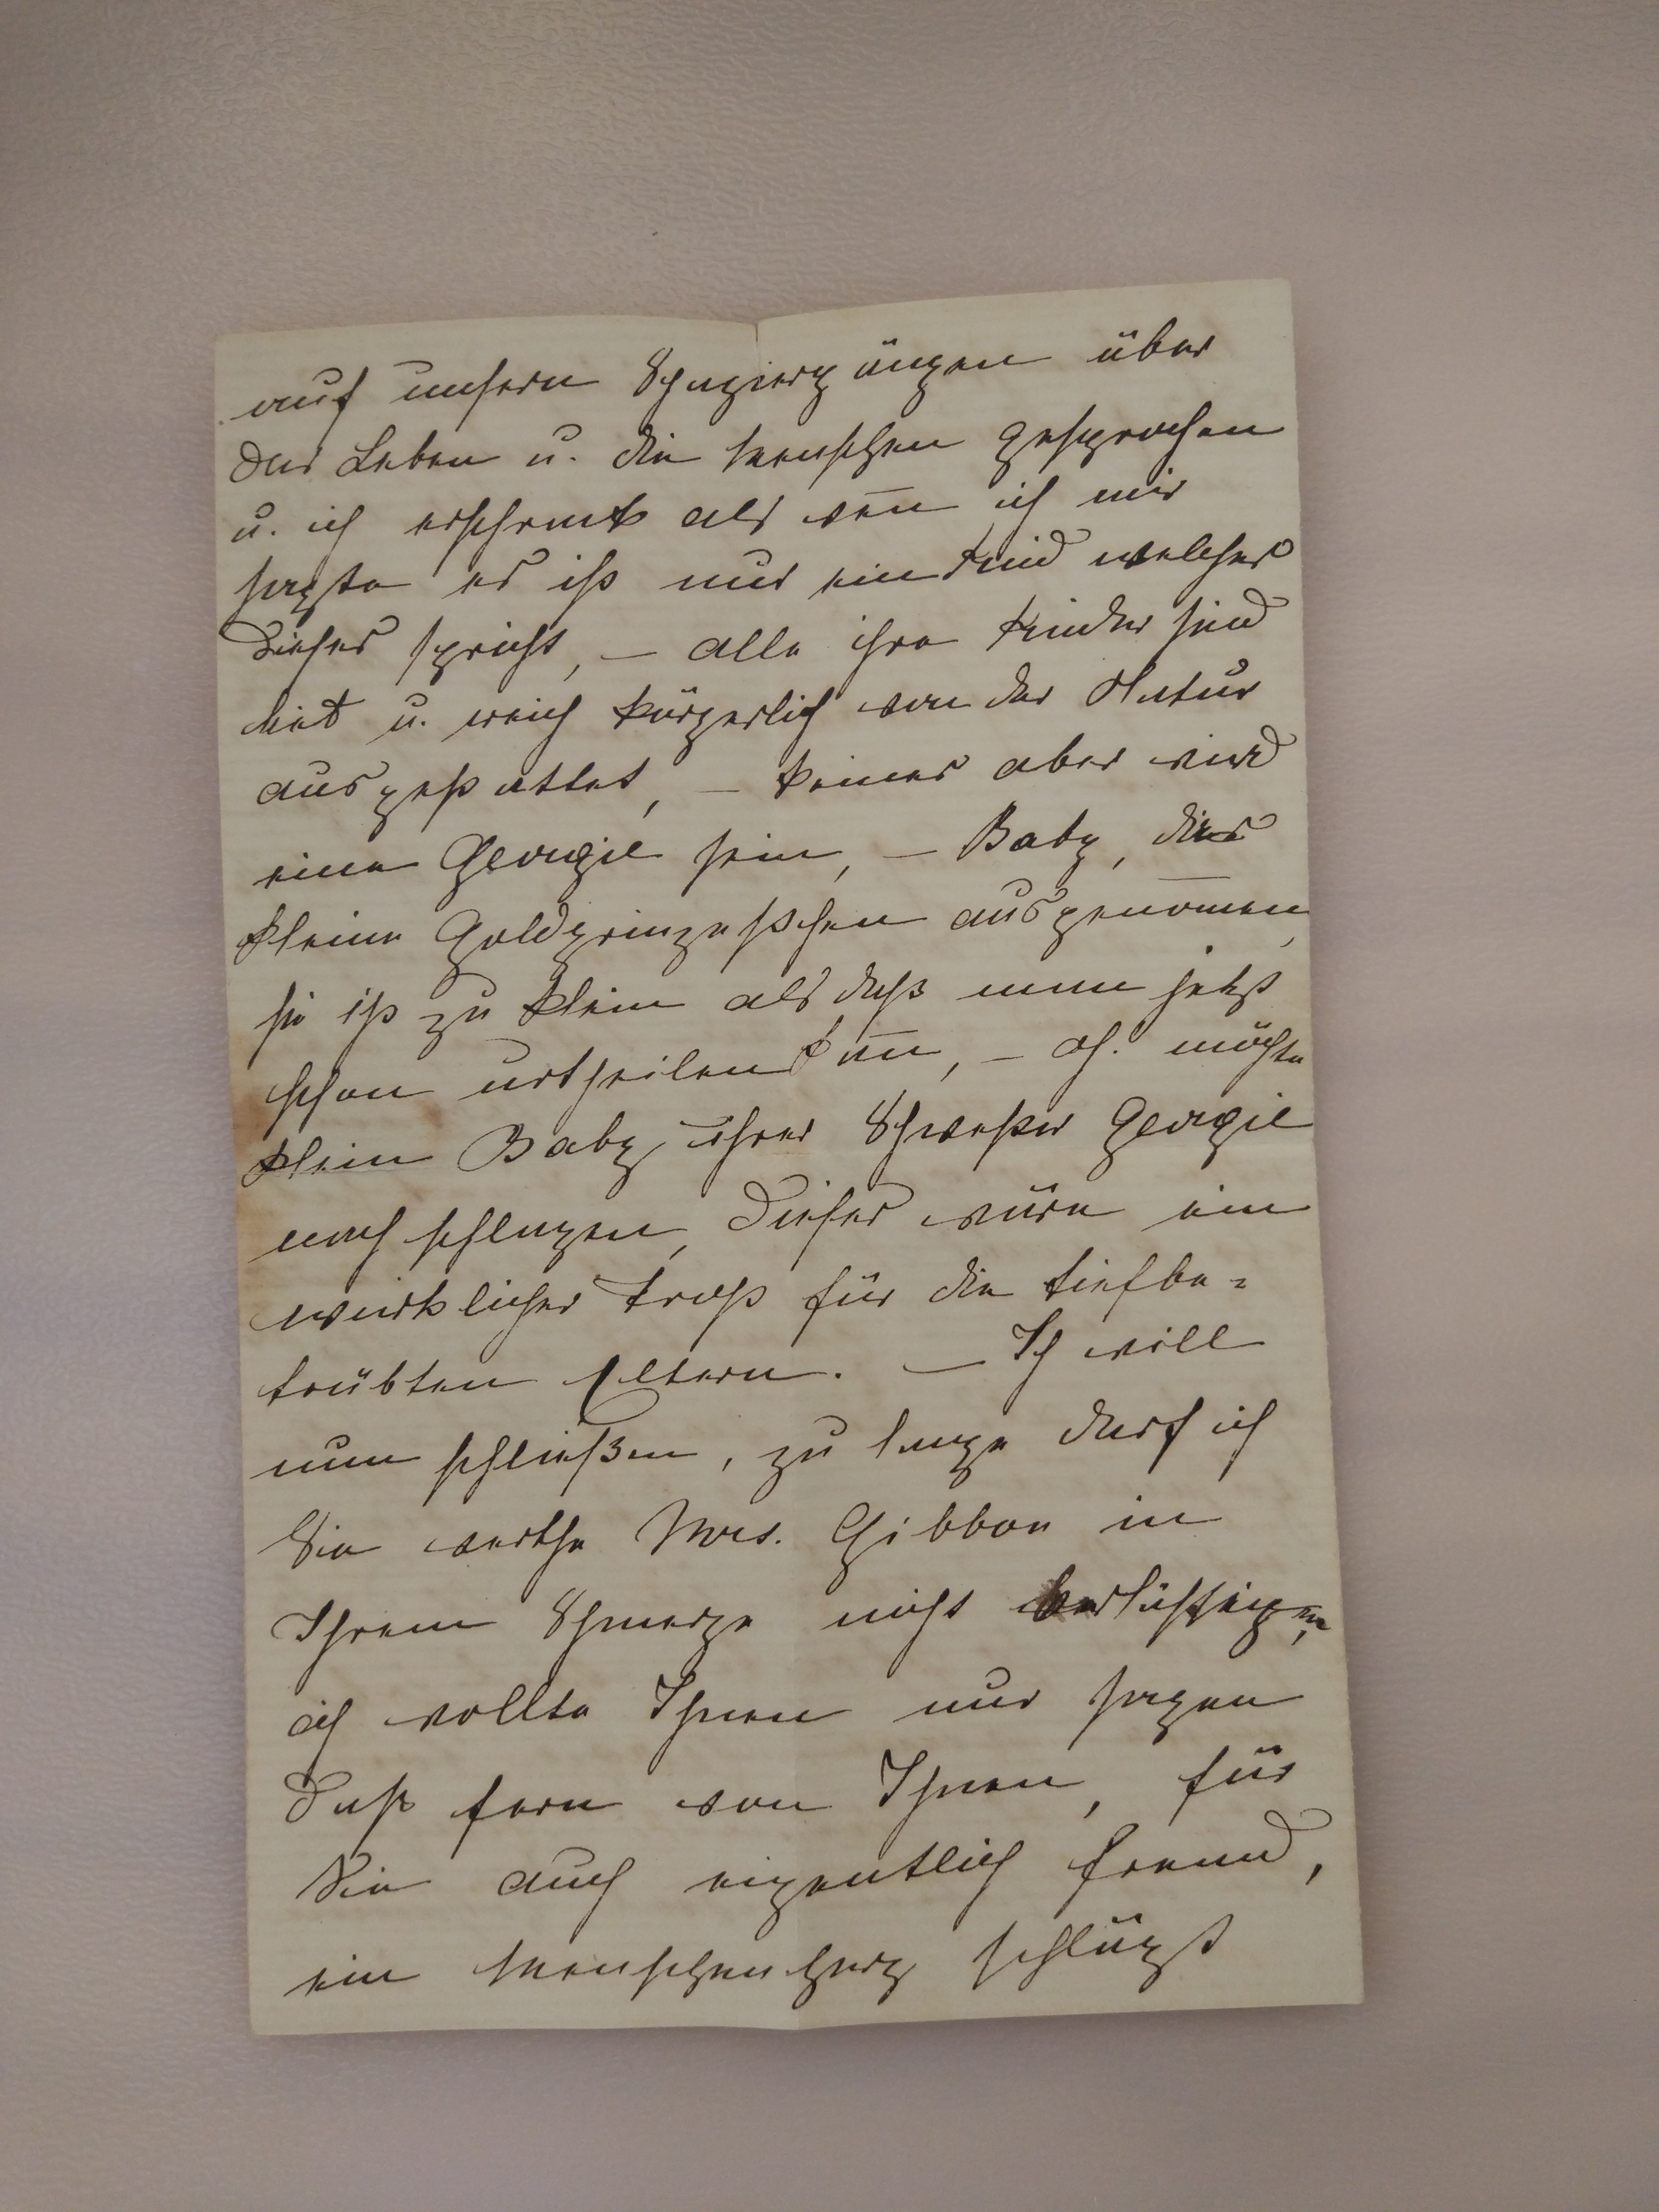 auf unsern Spaziergängen über
das Leben u. die Menschen gesprochen
u. ich erschrack als wen̄ ich mir
sagte es ist nur ein Kind welches
dieses spricht, – alle ihre Kinder sind
u. reich körperlich von der Natur
ausgestattet, – keines aber wird
eine Georgie sein, – Baby, das
kleine Goldprinzeßchen ausgenom̄en,
sie ist zu klein als daß man jetzt
schon urtheilen kan̄, – oh. möchte
klein Baby ihrer Schwester Georgie
nach schlagen, dieses wäre ein
wirklicher Trost für die tiefbe=
trübten Eltern. – Ich will
nun schließen, zu lange darf ich
Sie werthe Mrs. Gibbon in
Ihrem Schmerze nicht belästigen,
ich wollte Ihnen nur sagen
daß fern von Ihnen, für
Sie auch eigentlich fremd,
ein Menschenherz schlägt